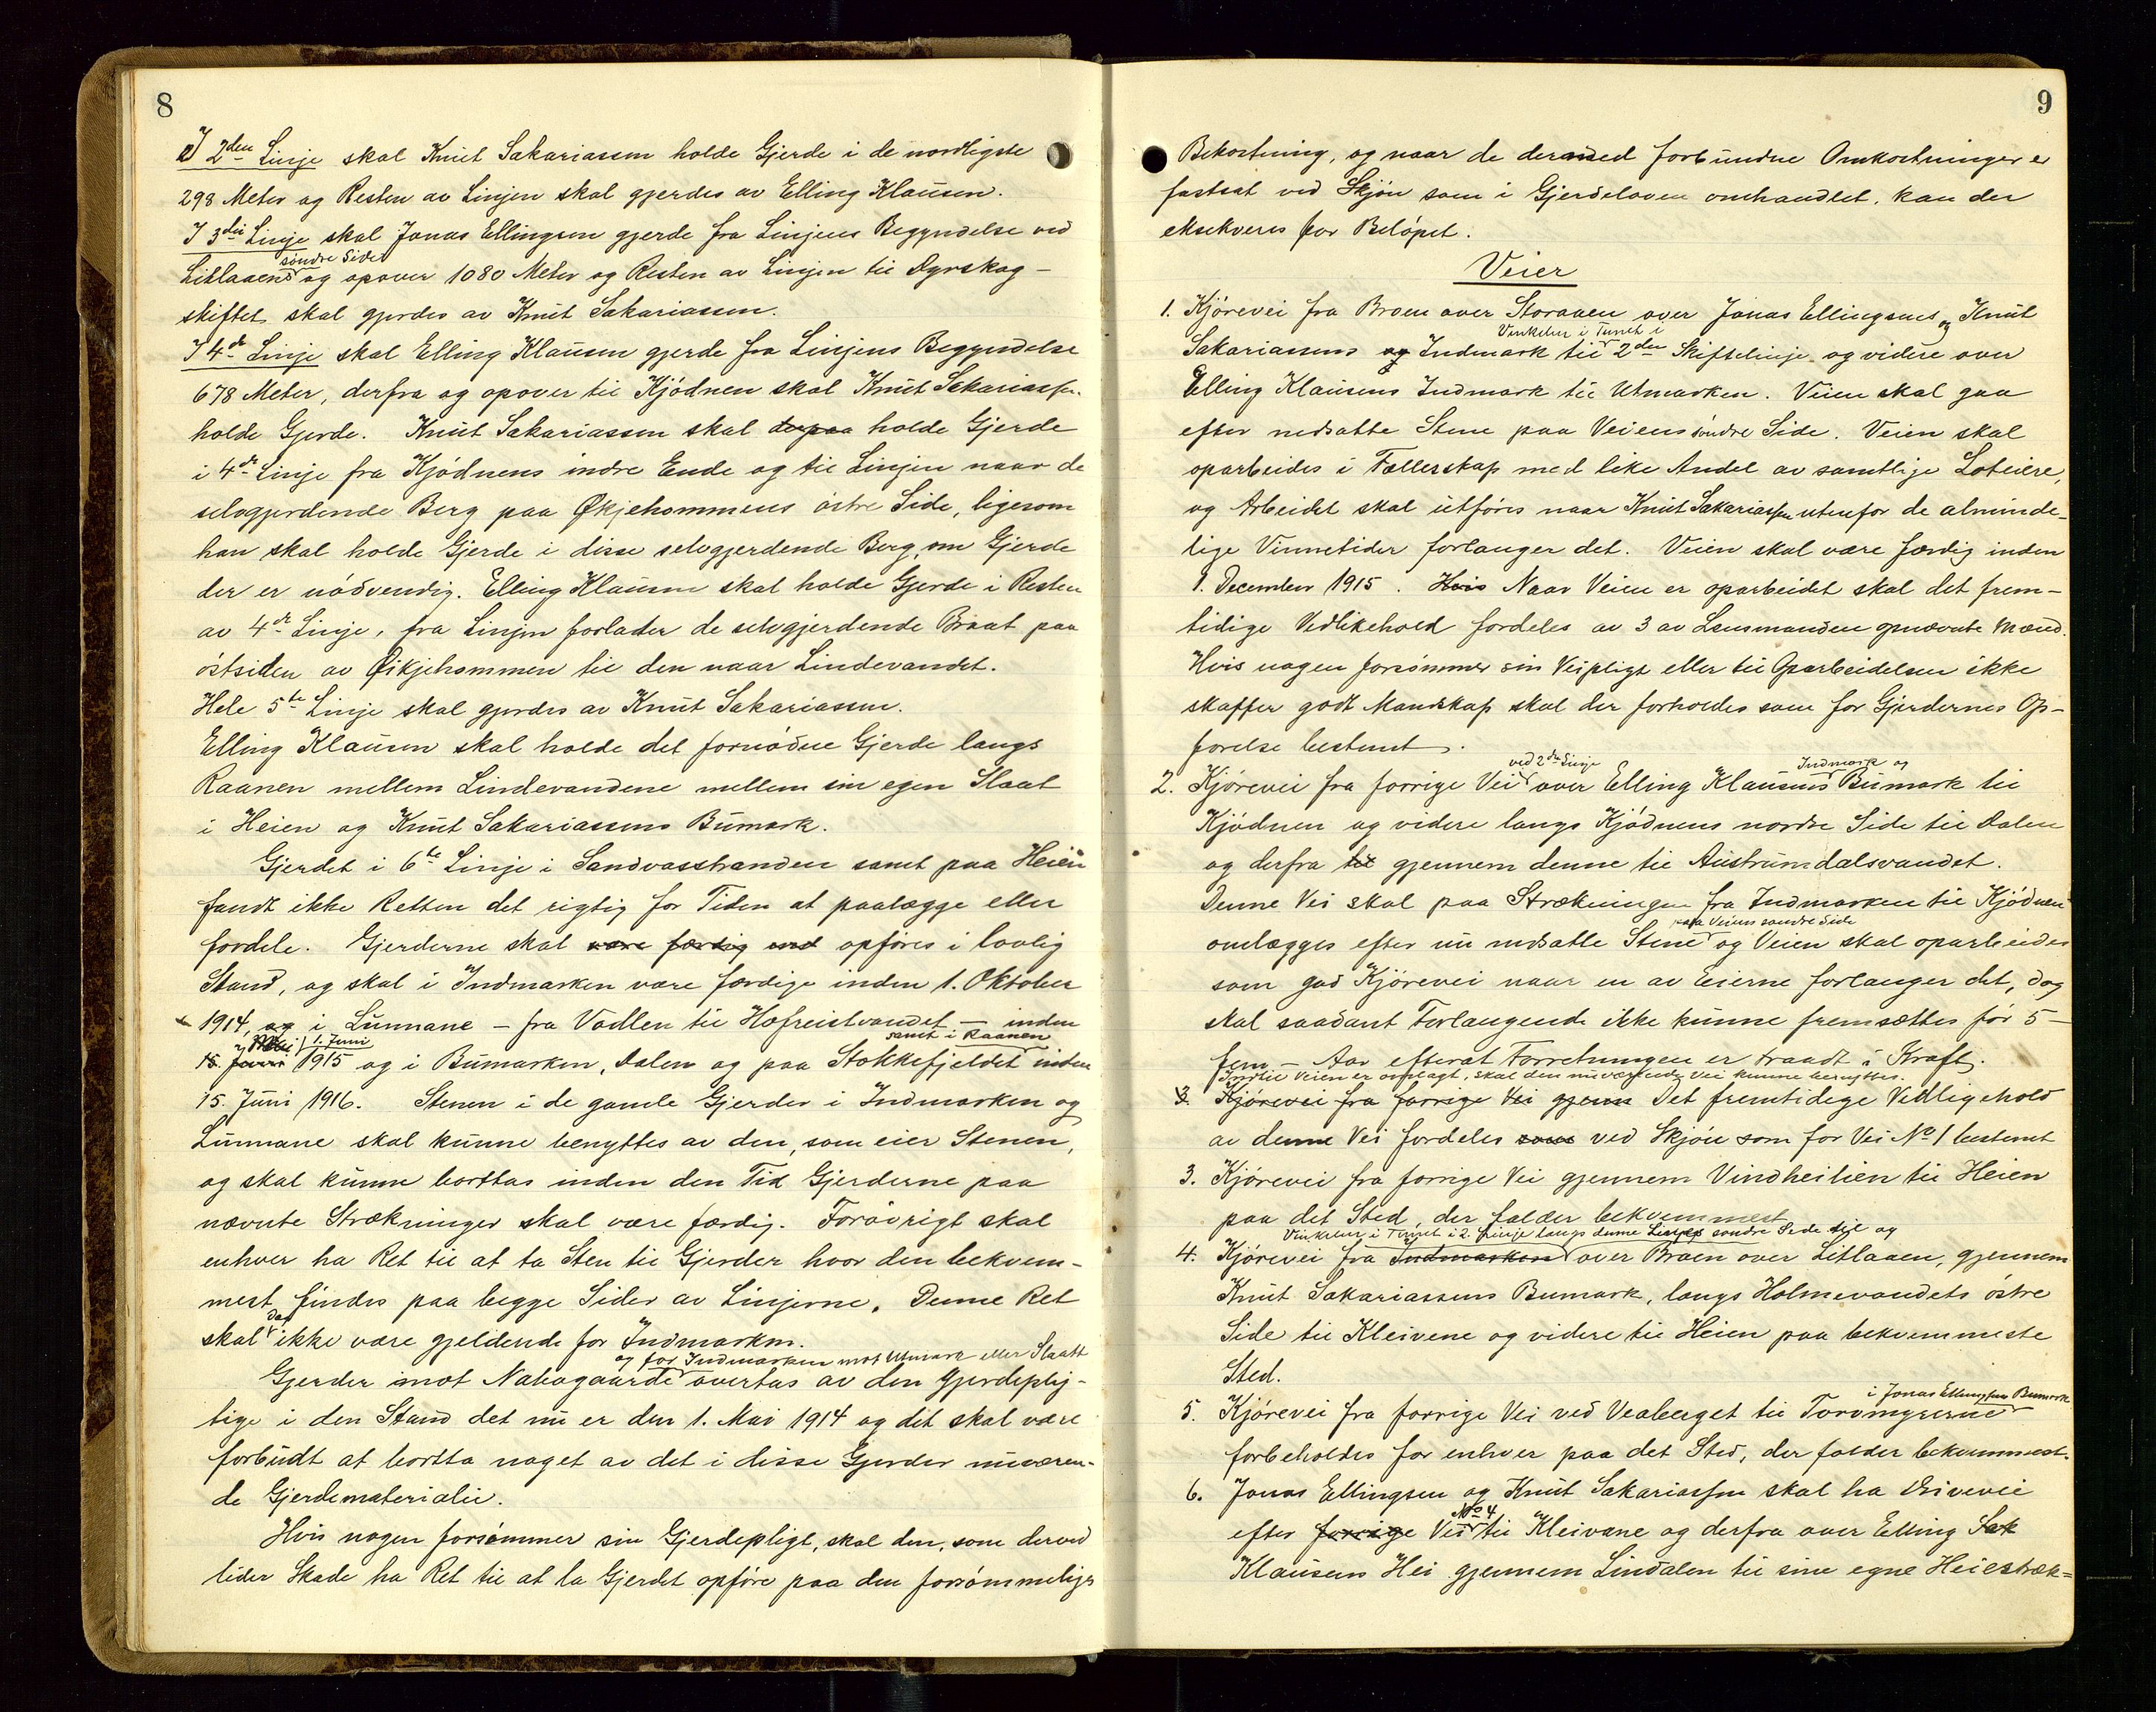 8
I 2den Linje skal Knut Sakariassen holde Gjerde i de nordligste
298 Meter og Resten av Linjen skal gjerdes av Elling Klausen.
I 3die Linje skal Jonas Ellingsen gjerde fra Linjens Begyndelse ved
søndre Side
Litlaaens og opover 1080 Meter og Resten av Linjen til Dyrskog-
skiftet skal gjerdes av Knut Sakariassen.
I 4de Linje skal Elling Klausen gjerde fra Linjens Begyndelse
678 Meter, derfra og opover til Kjødnen skal Knut Sakariassen
holde Gjerde. Knut Sakariassen skal derpaa holde Gjerde
i 4de Linje fra Kjødnens indre Ende og til Linjen naar de
selvgjerdende Berg paa Økjehommens østre Side, ligesom
han skal holde Gjerde i disse selvgjerdende Berg, om Gjerde
der er nødvendig. Elling Klausen skal holde Gjerde i Resten
av 4de Linje, fra Linjen forlader de selvgjerdende Braat paa
østsiden av Øikjehommen til den naar Lindevandet.
Hele 5te Linje skal gjerdes av Knut Sakariassen.
Elling Klausen skal holde det fornødne Gjerde langs
Raanen mellem Lindevandene mellem sin egen Slaat
i Heien og Knut Sakariassens Bumark.
Gjerdet i 6te Linje i Sandvasstranden samt paa Heien
fandt ikke Retten det rigtig for Tiden at paalægge eller
fordele. Gjerderne skal være færdig ind opføres i lovlig
Stand, og skal i Indmarken være færdige inden 1. Oktober
1914, og i Lunnane - fra Vodlen til Hofreistvandet - inden
1. Juni samt i Raanen
15. Juni 1915 og i Bumarken, Dalen og paa Stokkefjeldet inden
15. Juni 1916. Stenen i de gamle Gjerder i Indmarken og
Lunnane skal kunne benyttes av den, som eier Stenen,
og skal kunne borttas inden den Tid Gjerderne paa
nævnte Strækninger skal være færdig. Forøvrigt skal
enhver ha Ret til at ta Sten til Gjerder hvor den bekvem-
mest findes paa begge Sider av Linjerne. Denne Ret
dog
skal ikke være gjeldende for Indmarken.
og for Indmarken mot Utmark eller Slaatt
Gjerder imot Nabogaarde overtas av den gjerdeplig-
tige i den Stand det nu er den 1. Mai 1914 og det skal være
forbudt at bortta noget av det i disse Gjerder nuværen-
de Gjerdemateriale.
Hvis nogen forsømmer sin Gjerdepligt, skal den, som derved
lider Skade ha Ret til at la Gjerdet opføre paa den forsømmeliges
9
Bekostning, og naar de dermed forbundne Omkostninger er
fastsat ved Skjøn som i Gjerdeloven omhandlet, kan der
eksekveres for Beløpet.
Veier
1. Kjørevei fra Broen over Storaaen over Jonas Ellingsens og Knut
Vinkelen i Tunet i
Sakariassens og Indmark til 2den Skiftelinje og videre over
Elling Klausens Indmark til Utmarken. Veien skal gaa
efter nedsatte Stene paa Veiens søndre Side. Veien skal
oparbeides i Fællerskap med like Andel av samtlige Loteiere,
og Arbeidet skal utføres naar Knut Sakariassen utenfor de alminde-
lige Vinnetider forlanger det. Veien skal være færdig inden
1. December 1915. Hvis Naar Veien er oparbeidet skal det frem-
tidige Vedlikehold fordeles av 3 av Lensmanden opnævnte Mænd.
Hvis nogen forsømmer sin Veipligt eller til Oparbeidelsen ikke
skaffer godt Mandskap skal der forholdes som for Gjerdernes Op-
førelse bestemt.
ved 2den Linje Indmark og
2. Kjørevei fra forrige Vei over Elling Klausens Bumark til
Kjødnen og videre langs Kjødnens nordre Side til Dalen
og derfra til gjennem denne til Austrumdalsvandet.
Denne Vei skal paa Strækningen fra Indmarken til Kjødnen
paa Veiens søndre Side
omlægges efter nu nedsatte Stene og Veien skal oparbeides
som god Kjørevei naar en av Eierne forlanger det, dog
skal saadant Forlangende ikke kunne fremsættes før 5-
fem - Aar efterat Forretningen er traadt i Kraft.
Indtil Veien er omlagt, skal den nuværende Vei kunne benyttes.
3. Kjørevei fra forrige Vei gjenn Det fremtidige Vedligehold
av denne Vei fordeles som ved Skjøn som for Vei No 1 bestemt
3. Kjørevei fra forrige Vei gjennem Vindheilien til Heien
paa det Sted, der falder bekvemmest
Vinkelen i Tunet i 2. Linje langs denne Linjes søndre Side til og
4. Kjørevei fra Indmarken over Broen over Litlaaen, gjennem
Knut Sakariassens Bumark, langs Holmevandets østre
Side til Kleivene og videre til Heien paa bekvemmeste
Sted.
i Jonas Ellingsens Bumark
5. Kjørevei fra forrige Vei ved Veaberget til Torvmyrerne
forbeholdes for enhver paa det Sted, der falder bekvemmest.
6. Jonas Ellingsen og Knut Sakariassen skal ha Drivevei
No 4
efter forrige Vei til Kleivane og derfra over Elling Sak
Klausens Hei gjennem Lindalen til sine egne Heiestræk=